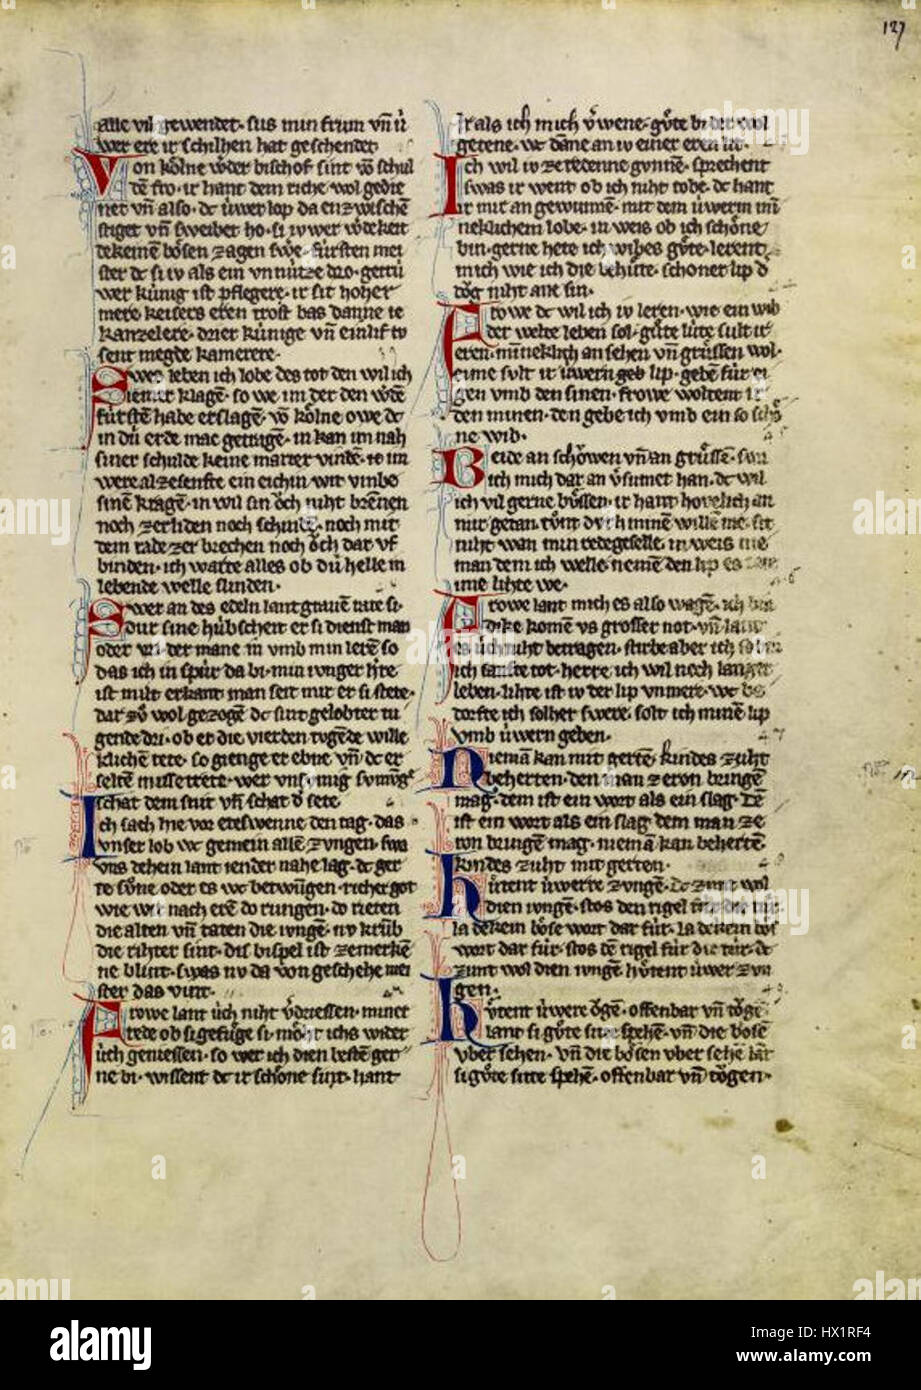 127
alle vil gewendet· sus min frum vñ ů
wer ere ir schilhen hat geschendet
Von kölne wˢder bischof sint vō schul
dē fro· ir hant dem riche wol gedie
net vñ also· dc ůwer lop da enzwischē
stiget vñ sweibet ho· si iv wer wˢdekeit
dekeinē bösen zagen swˢe· fürsten mei
ster dc si iv als ein vnnütze dro· getrů
wer kúnig ist pflegere· ir sit hoher
mere keisers eren trost bas danne ie
kanzelere· drier kúnige vñ einlif tv
sent megde kamerere·
Swes leben ich lobe des tot den wil ich
iemer klagē· so we im der den wˢdē
fúrstē habe erslagē· vō kölne owe dc
in dú erde mac getragē· in kan im nah
siner schulde keine marter vindē· ie im
were alzesenfte ein eichin wit vmbe
sinē kragē· in wil sin ǒch niht brēnen
noch zerliden noch schindē· noch mit
dem rade zer brechen noch ǒch dar vf
binden· ich warte alles ob dú helle in
lebende welle slinden·
Swer an des edeln lantgrauē rate si·
dur sine húbscheit er si dienst man
oder vn der mane in vmb min lerē so
das ich in spúr da bi· min ivnger hˢre
ist milt erkant man seit mir er si stete·
dar zů wol gezogē dc sint gelobter tu
gende dri· ob er die vierden tvgende wille
klichē tete· so gienge er ebne vñ dc er
seltē missetrete· wer vns mig svmvnge
schat dem snit vñ schat d sete
Ich sach hie vor eteswenne den tag· das
vnser lob wc gemein allē zvngen· swa
vns dehein lant iender nahe lag· dc ger
te sůne oder es wc betwūgen· richer got
wie wir nach erē do rungen· do rieten
die alten vñ taten die ivngē· nv krūb
die rihter sint· dis bispel ist zemerkē
ne blint· swas nv da von geschehe mei
ster das vint·
Frowe lant úch niht vˢdriessen· miner
rede ob si gefúge si· möht ichs wider
úch geniessen· so wer ich dien bestē ger
ne bi· wissent dc ir schöne sint· hant
Ir als ich mich vˢwene· gůte bi der wol
getene· wc dāne an iv einer eren lit·
Ich wil iv ze redenne gvnnē· sprechent
swas ir went ob ich niht tobe· dc hant
ir mir an gewunnē· mit dem úwerm mi
neklichem lobe· in weis ob ich schöne
bin· gerne hete ich wibes gůte· lerent
mich wie ich die behůte· schoner lip d
tǒg niht ane sin·
Frowe dc wil ich iv leren· wie ein wib
der welte leben sol· gůte lúte sult ir
eren· minneklich an sehen vñ grůssen wol·
eime sult ir úwern geb lip· gebē fúr ei
gen vmb den sinen· frowe woltent ir
den minen· den gebe ich vmb ein so schö
ne wib·
Beide an schǒwen vñ an grůssē· swc
ich mich dar an vˢsumet han· dc wil
ich vil gerne bůssen· ir hant hovelich an
mir getan· tůnt dvrh minē willē me· sit
niht wan min redegeselle· in weis nie
man dem ich welle nemē den lip es
ime lihte we·
Frowe lant mich es also wagē· ich bin
dike komē vs grosser not· vñ lant
es úch niht betragen· stirbe aber ich so bin
ich sanfte tot· herre ich wil noch langer
leben· lihte ist iv der lip vnmere· wc be
dorfte ich solher swere· solt ich minē lip
vmb úwern geben·
Nieman kan mit gertē· kindes zuht
beherten· den man ze eron bringē
mag· dem ist ein wort als ein slag· Dē
ist ein wort als ein slag dem man ze
ron bringen mag· niemā kan behertē
kindes zuht mit gerten·
Hůtent úwerre zungē· dc zimt wol
dien ivngē· stos den rigel fúr die túr·
la dekein böse wort dar fúr· la dekein bös
wort dar fúr· stos dē rigel fúr die túr· dc
zimt wol dien ivngē hůtent úwer zvn
gen·
Hůtent úwere ǒgē· offenbar vñ tǒgē
lant si gůte site spehē· vñ die bösē
vber sehen· vñ die bösen vber sehē lāt
si gůte sitte spehē· offenbar vñ tǒgen·
alamy
Image ID: HX1RF4
www.alamy.com